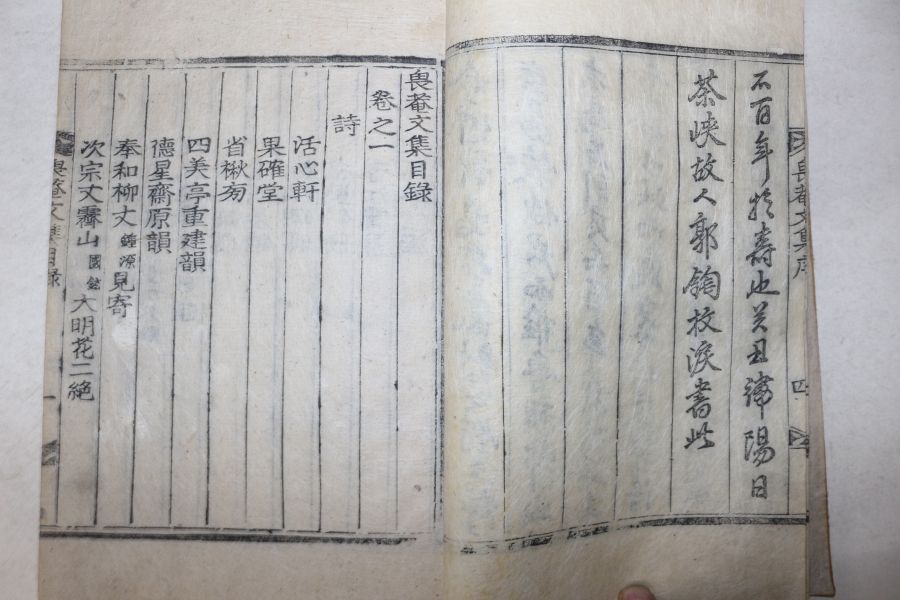 畏菴文集序
四
不百年於壽也癸丑陽日
茶峽故人郭鋾抆淚書此
畏菴文集目錄
卷之一
詩
活心軒
果確堂
省楸
四美亭重建韻
德星齋原韻
奉和柳丈鍾源見寄
次宗丈霽山國大明花二絕
畏菴文集目錄
一